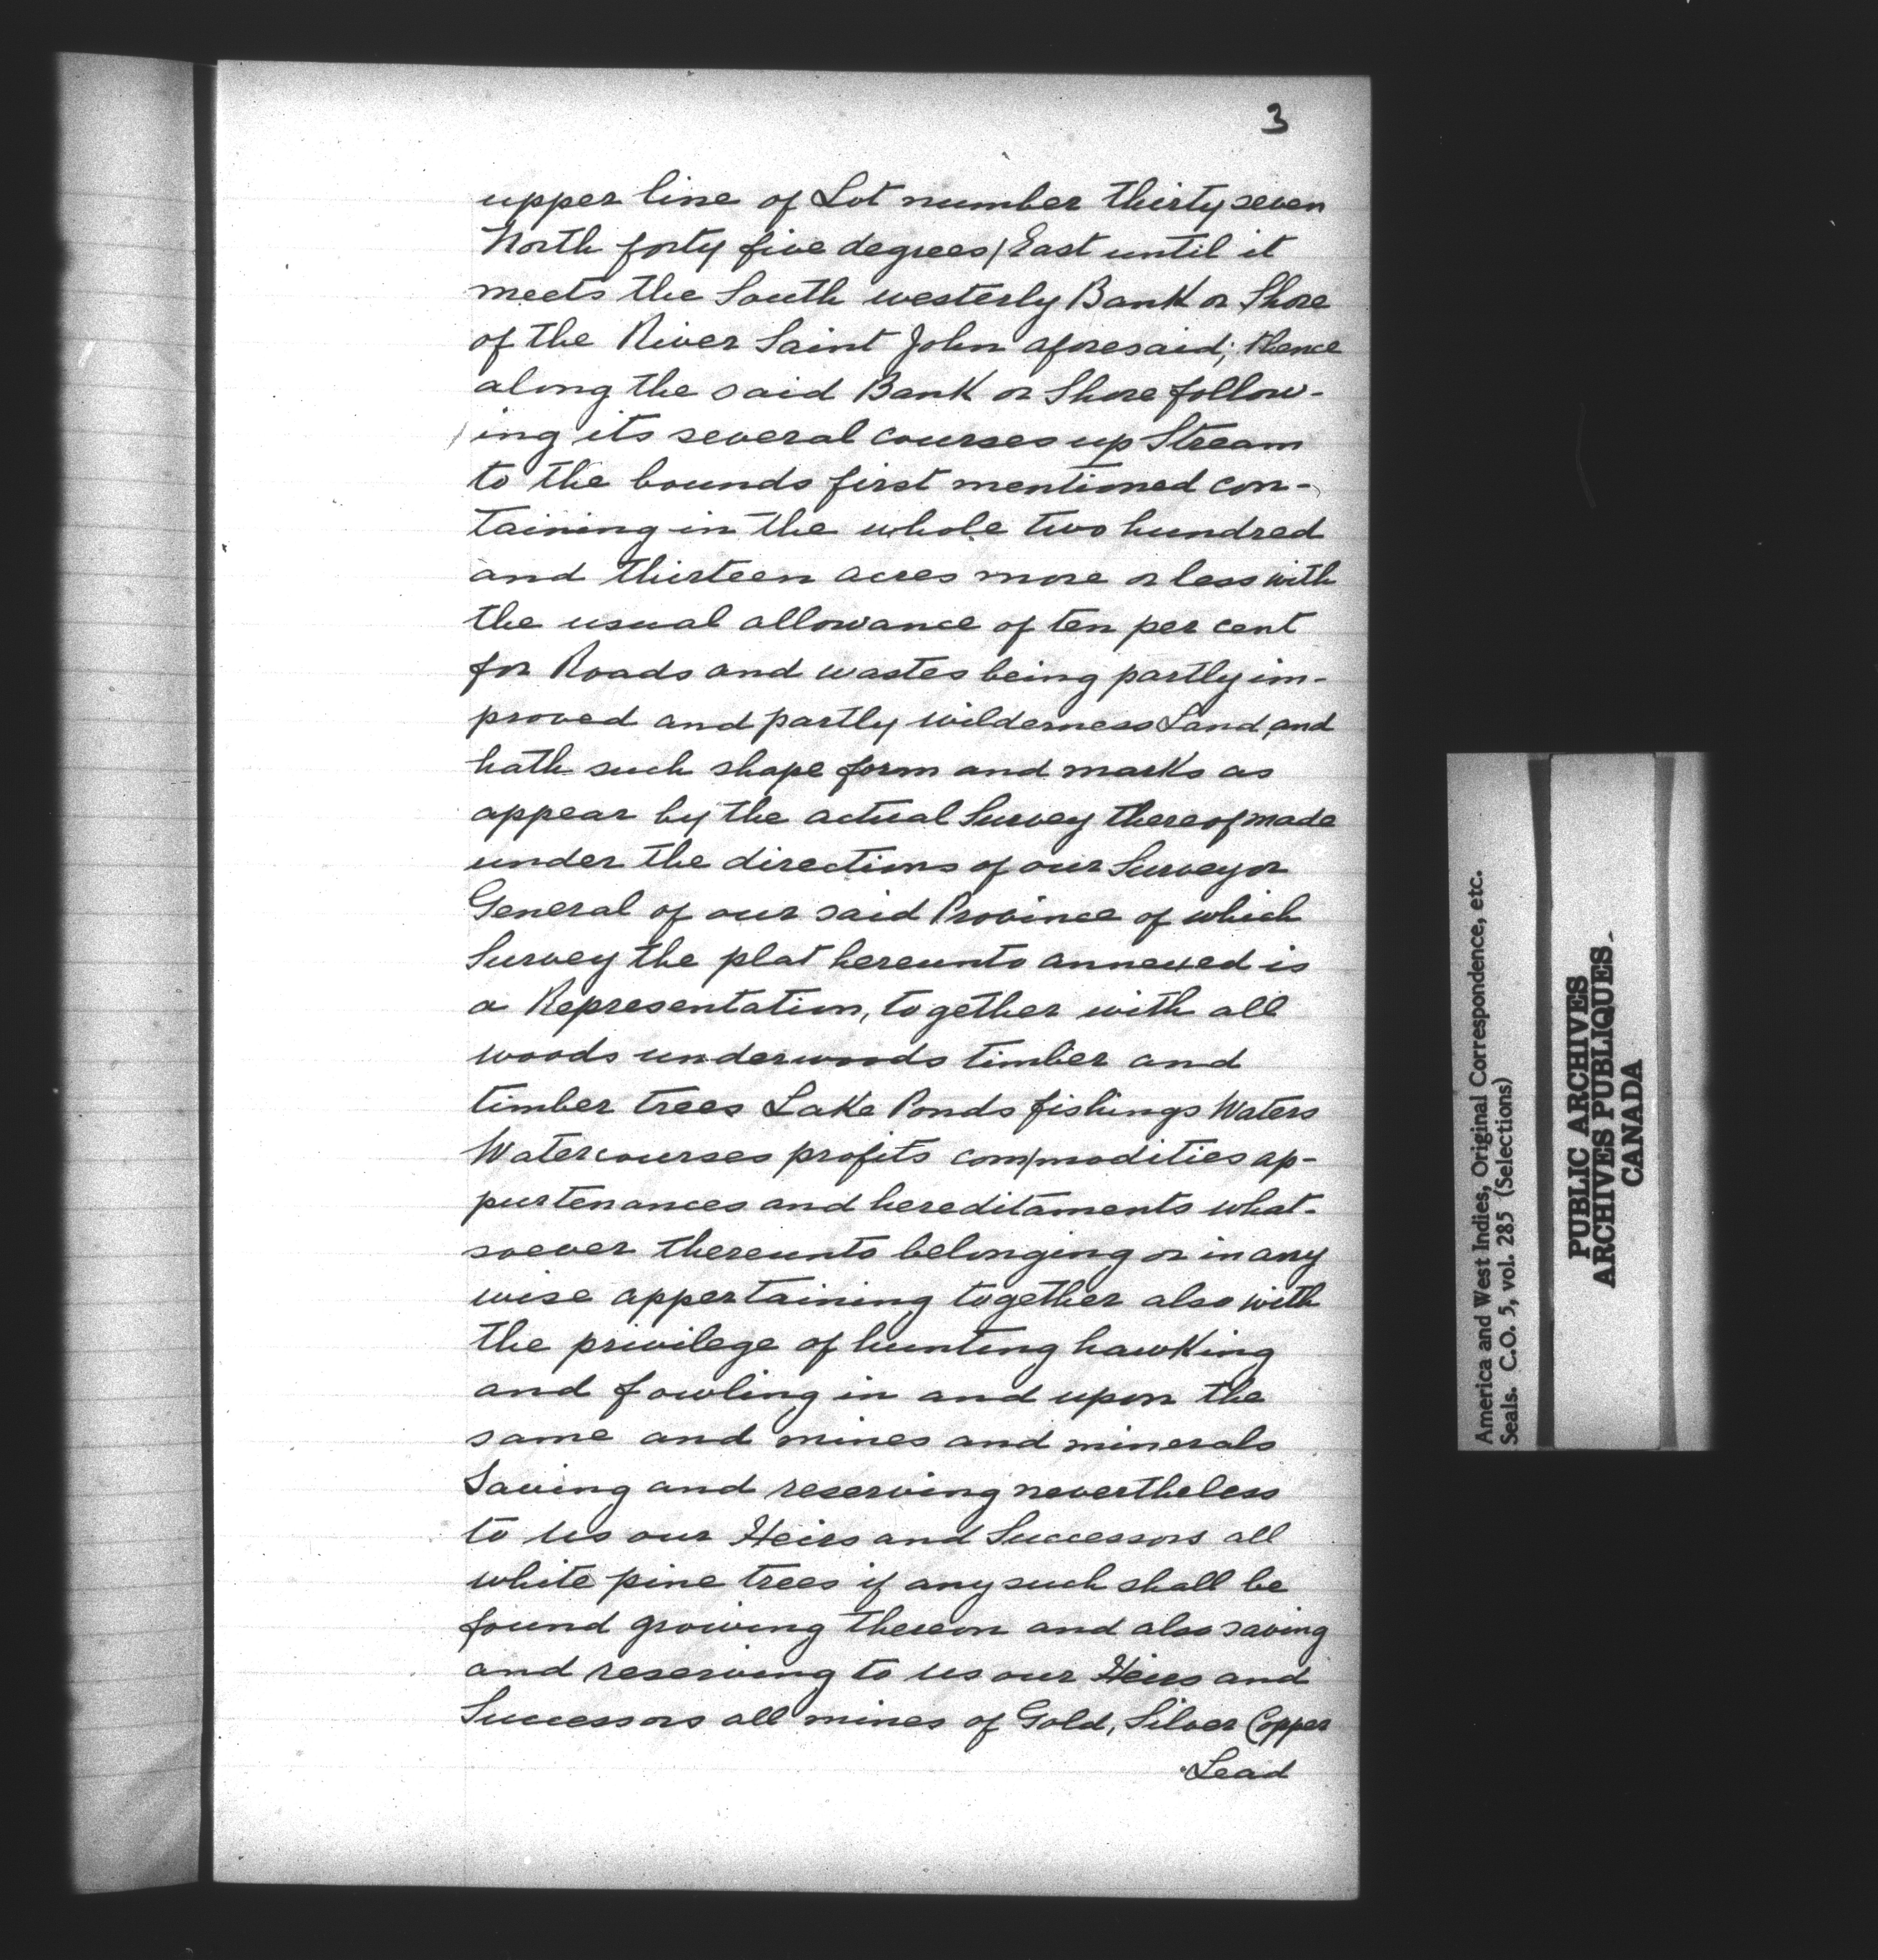 3
upper line of Lot number thirty seven
North forty five degrees / East until it
meets the South westerly Bank or Shore
of the River Saint John aforesaid; thence
along the said Bank or Shore follow-
ing its several courses up Stream
to the bounds first mentioned con-
taining in the whole two hundred
and thirteen acres more or less with
the usual allowance of ten per cent
for Roads and wastes being partly im-
proved and partly wilderness Land, and
hath such shape form and marks as
appear by the actual Survey thereof made
under the directions of our Surveyor
General of our said Province of which
Survey the plat hereunto annexed is
a Representation, together with all
woods underwoods timber and
timber trees Lake Ponds fishings Waters
Watercourses profits commodities ap-
purtenances and hereditaments what-
soever thereunto belonging or in any
wise appertaining together also with
the privilege of hunting hawking
and fowling in and upon the
same and mines and minerals
Saving and reserving nevertheless
to us our Heirs and Successors all
white pine trees if any such shall be
found growing thereon and also saving
and reserving to us our Heirs and
Successors all mines of Gold, Silver Copper
Lead
America and West Indies, Original Correspondence, etc.
Seals. C.O. 5, vol. 285 (Selections)
PUBLIC ARCHIVES
ARCHIVES PUBLIQUES
CANADA